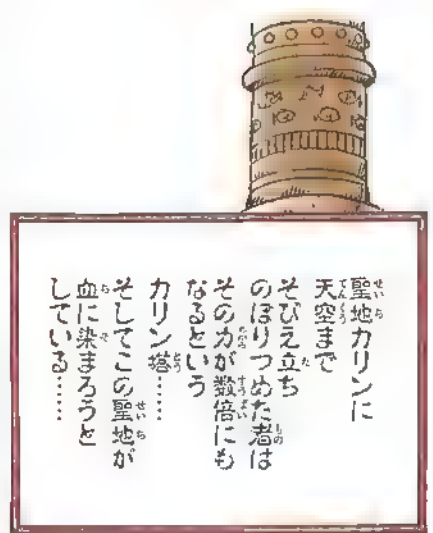 聖地カリンに
天空まで
そびえ立ち
のぼりつめた者は
その力が数倍にも
なるという
カリン塔……
そしてこの聖地が
血に染まろうと
している……